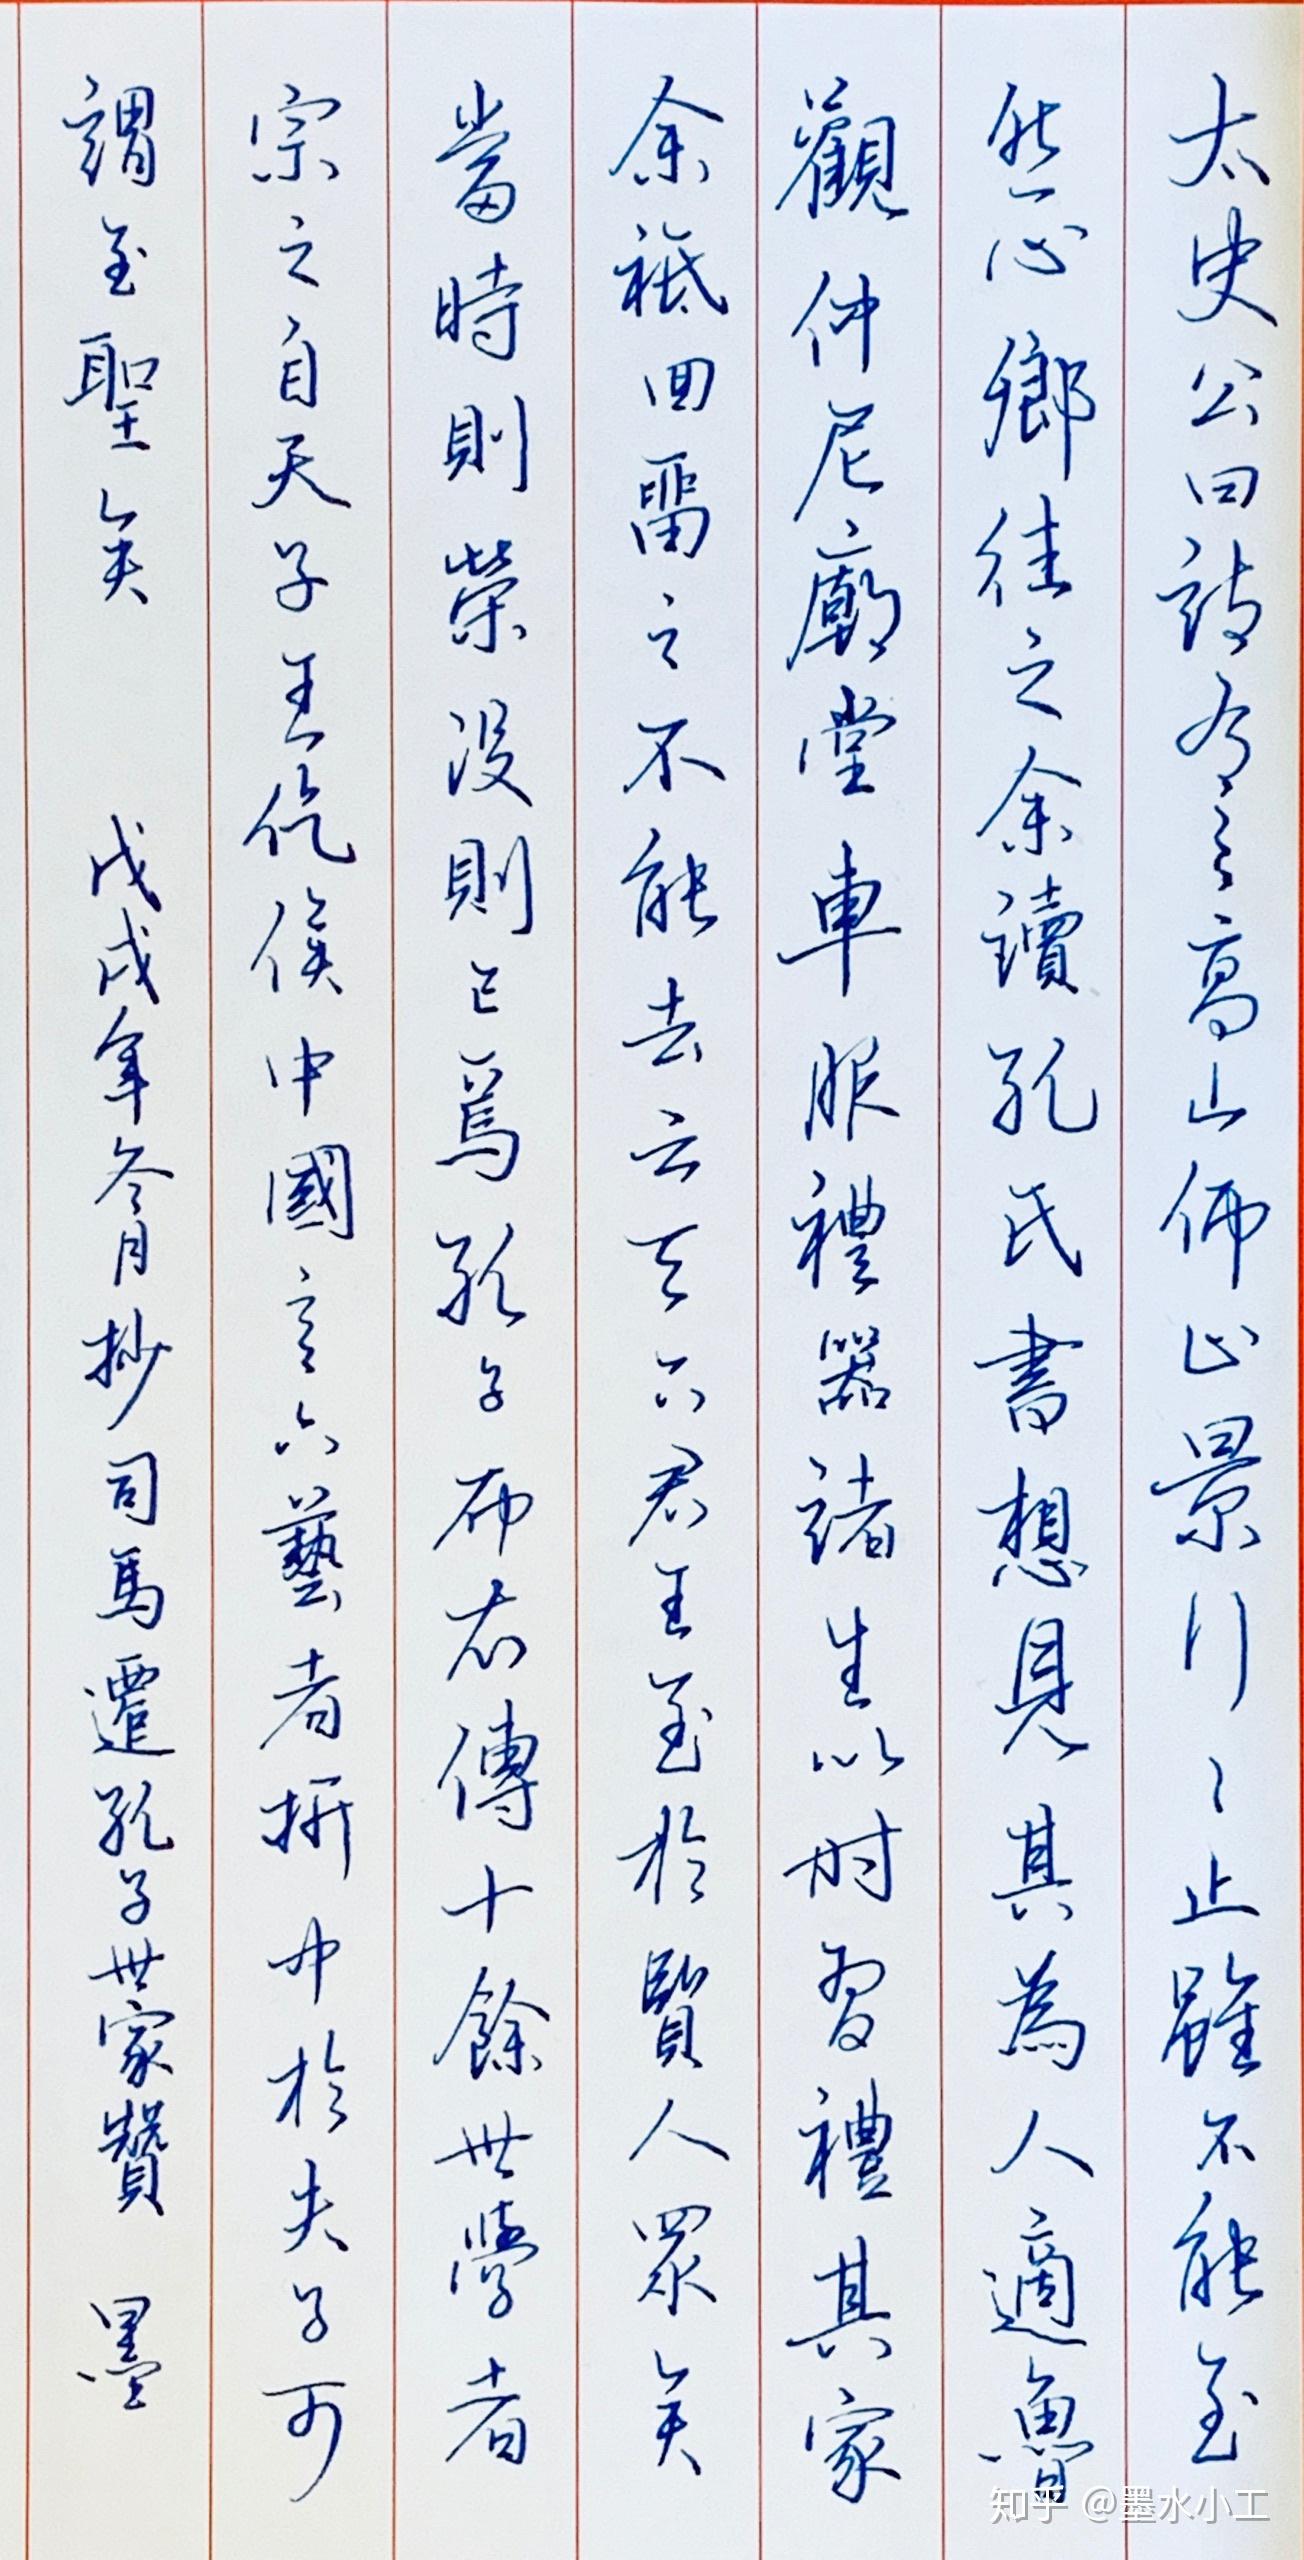 太史公曰詩有之高山仰止景行〻止雖不能至
然心鄉往之余讀孔氏書想見其為人適魯
觀仲尼廟堂車服禮器諸生以时習禮其家
余祗回畱之不能去云天下君王至於賢人眾矣
當時則榮沒則已焉孔子布衣傳十餘世學者
宗之自天子王侯中國言六藝者折中於夫子可
謂至聖矣 戊戌年冬月抄司馬遷孔子世家贊 墨
知乎 @墨水小工